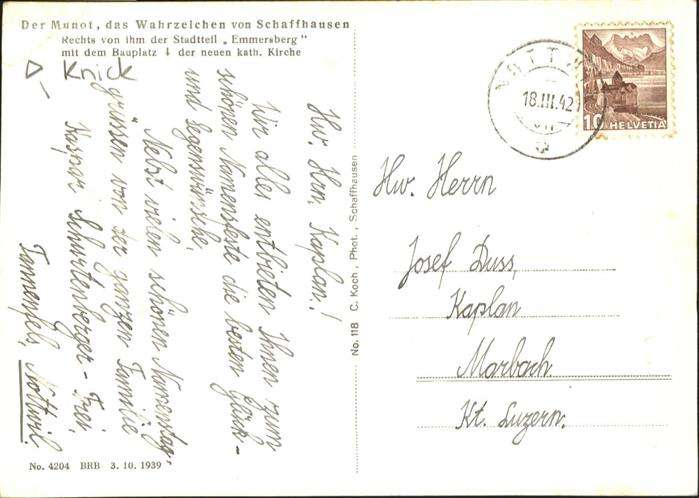 Der Munot, das Wahrzeichen von Schaffhausen
Rechts von ihm der Stadtteil „Emmersberg"
mit dem Bauplatz ↓ der neuen kath. Kirche
Knick
Hw. Hrn. Kaplan!
Wir alle entbieten Ihnen zum
schönen Namensfeste die besten Glück-
und Segenswünsche.
Nebst vielen schönen Namenstag-
grüssen von der ganzen Familie
Kaspar Schürtenberger - Frei,
Tannenfels, Nottwil
No. 4204 BRB 3. 10. 1939
No. 118 C. Koch, Phot., Schaffhausen
18.III.42
10 HELVETIA
Hw. Herrn
Josef Duss,
Kaplan
Marbach
Kt. Luzern.